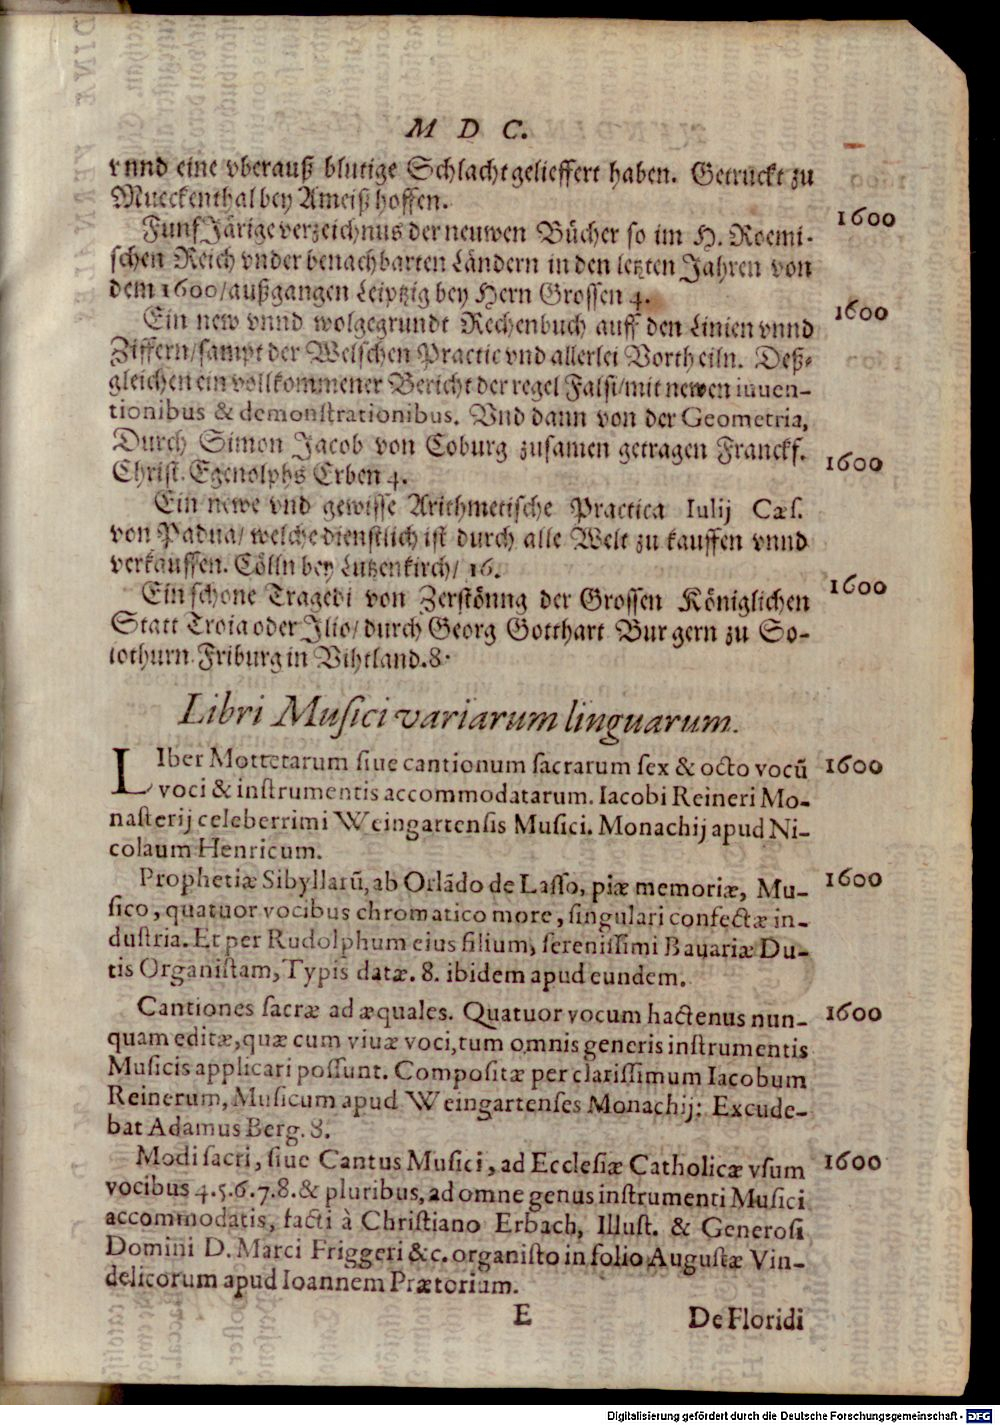 M D C.
vnnd eine vberauß blutige Schlacht gelieffert haben. Getruckt zu
Mueckenthal bey Ameißhoffen.
1600
Funf Järige verzeichnus der neuwen Bücher so im H. Roemi-
schen Reich vnder benachbarten Ländern in den letzten Jahren von
dem 1600/außgangen Leiptzig bey Hern Grossen 4.
1600
Ein new vnnd wolgegrundt Rechenbuch auff den Linien vnnd
Ziffern/sampt der Welschen Practic vnd allerlei Vortheiln. Deß-
gleichen ein vollkommener Bericht der regel Falsi/mit newen inuen-
tionibus & demonstrationibus. Vnd dann von der Geometria,
Durch Simon Jacob von Coburg zusamen getragen Franckf.
Christ. Egenolphs Erben 4.
1600
Ein newe vnd gewisse Arithmetische Practica Iulij Cæs.
von Padua/ welche dienstlich ist durch alle Welt zu kauffen vnnd
verkauffen. Cölln bey Lutzenkirch/ 16.
1600
Ein schone Tragedi von Zerstönng der Grossen Königlichen
Statt Troia oder Ilio/ durch Georg Gotthart Burgern zu So-
lothurn. Friburg in Vihtland. 8.
Libri Musici variarum linguarum.
LIber Mottetarum siue cantionum sacrarum sex & octo vocū 1600
voci & instrumentis accommodatarum. Iacobi Reineri Mo-
nasterij celeberrimi Weingartensis Musici. Monachij apud Ni-
colaum Henricum.
Prophetiæ Sibyllarū, ab Orlādo de Lasso, piæ memoriæ, Mu- 1600
sico, quatuor vocibus chromatico more, singulari confectæ in-
dustria. Et per Rudolphum eius filium, serenissimi Bauariæ Du-
tis Organistam, Typis datæ. 8. ibidem apud eundem.
Cantiones sacræ ad æquales. Quatuor vocum hactenus nun- 1600
quam editæ, quæ cum viuæ voci, tum omnis generis instrumentis
Musicis applicari possunt. Compositæ per clarissimum Iacobum
Reinerum, Musicum apud Weingartenses Monachij: Excude-
bat Adamus Berg. 8.
Modi sacri, siue Cantus Musici, ad Ecclesiæ Catholicæ vsum 1600
vocibus 4.5.6.7.8. & pluribus, ad omne genus instrumenti Musici
accommodatis, facti à Christiano Erbach, Illust. & Generosi
Domini D. Marci Friggeri &c. organisto in folio Augustæ Vin-
delicorum apud Ioannem Prætorium.
E De Floridi
Digitalisierung gefördert durch die Deutsche Forschungsgemeinschaft - DFG